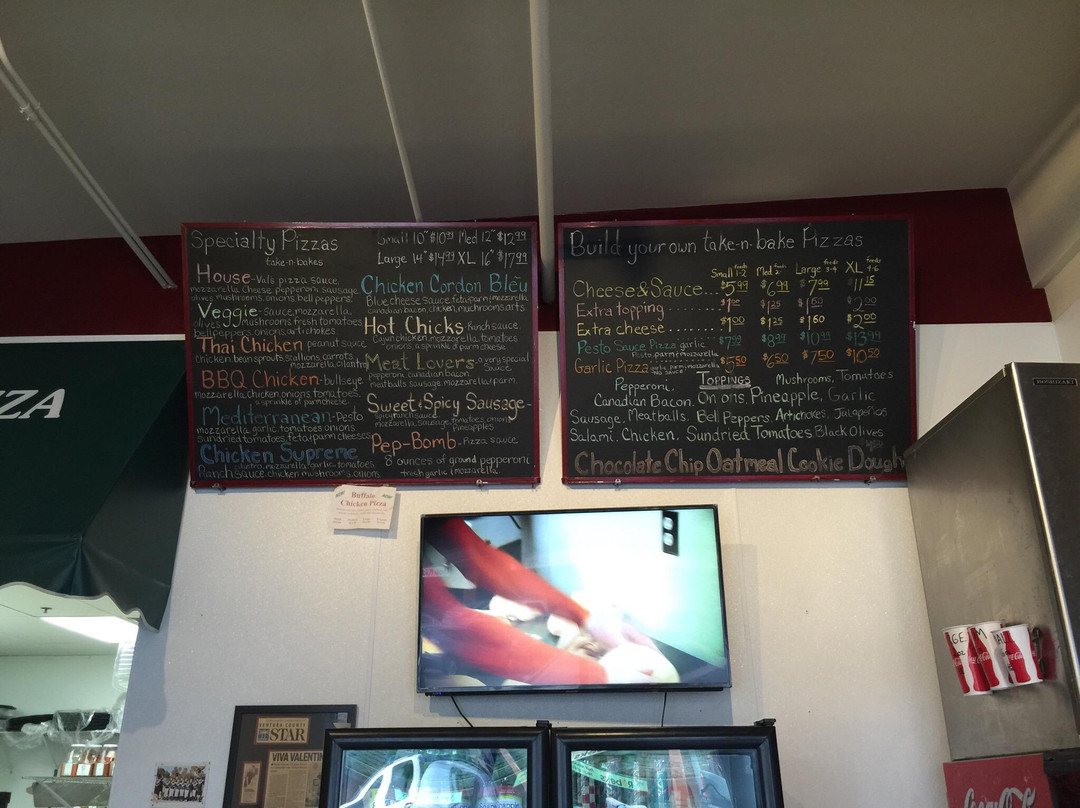 Specialty Pizzas
take-n-bakes
Small 10" $10.99 Med 12" $12.99
Large 14" $14.99 XL 16" $17.99
House-Val's pizza sauce,
mozzarella cheese, pepperoni, sausage
olives mushrooms, onions, bell peppers!
Veggie-sauce, mozzarella,
olives mushrooms fresh tomatoes
bell peppers onions artichokes.
Thai Chicken peanut sauce
chicken, bean sprouts, scallions, carrots,
mozzarella, cilantro
BBQ Chicken-bullseye
mozzarella, chicken, onions tomatoes,
a sprinkle of parm cheese.
Mediterranean-Pesto,
mozzarella, garlic tomatoes onions
sundried tomatoes, feta, parm cheeses
Chicken Supreme
cilantro, mozzarella, garlic, tomatoes,
Ranch sauce, chicken, mushrooms, onions
Chicken Cordon Bleu
Blue cheese sauce, feta, parm, mozzarella,
canadian bacon, chicken, mushrooms, arts.
Hot Chicks-Ranch sauce,
Cajun chicken, mozzarella, tomatoes,
onions, a sprinkle of parm cheese.
Meat Lovers-a very special
sauce
pepperoni, canadian bacon,
meatballs sausage, mozzarella, parm.
Sweet & Spicy Sausage-
mozzarella, sausage, tomatoes, onions,
pineapples
Pep-Bomb-Pizza sauce
8 ounces of ground pepperoni
fresh garlic, mozzarella.
Build your own take-n-bake Pizzas
Small feeds 1-2 Med feeds 2-3 Large feeds 3-4 XL feeds 4-6
Cheese & Sauce... $5.99 $6.99 $7.99 $11.15
Extra topping........ $1.00 $1.25 $1.50 $2.00
Extra cheese........ $1.00 $1.25 $1.50 $2.00
Pesto Sauce Pizza garlic $7.99 $8.99 $10.99 $13.99
Pesto, parm, mozzarella
Garlic Pizza garlic, parm, mozzarella $5.50 $6.50 $7.50 $10.50
NO SAUCE
TOPPINGS
Pepperoni, Mushrooms, Tomatoes
Canadian Bacon, Onions, Pineapple, Garlic
Sausage, Meatballs, Bell Peppers Artichokes, Jalapeños
Salami, Chicken, Sundried Tomatoes Black Olives
Chocolate Chip Oatmeal Cookie Dough
ZZA
Buffalo
Chicken Pizza
VENTURA COUNTY
STAR
VIVA VALENTIN
Coca-Cola